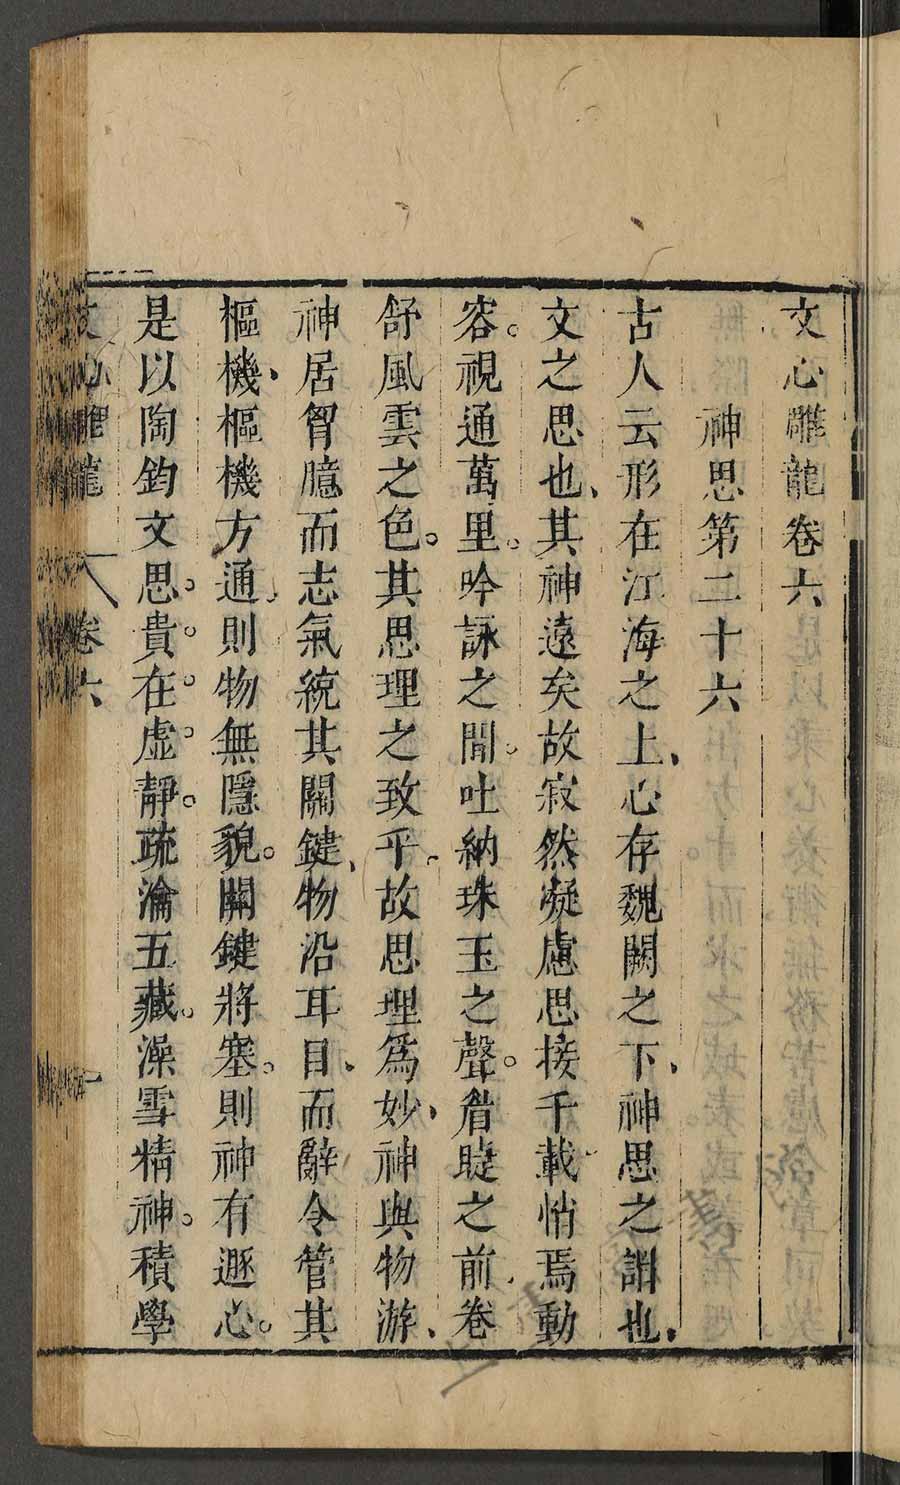 文心雕龍卷六
神思第二十六
古人云形在江海之上、心存魏闕之下、神思之謂也、
文之思也、其神遠矣故寂然凝慮思接千載悄焉動
容。視通萬里。吟詠之間。吐納珠玉之聲。眉睫之前、卷
舒風雲之色。其思理之致乎故思理爲妙、神與物游、
神居胷臆而志氣統其關鍵、物沿耳目、而辭令管其
樞機、樞機方通、則物無隱貌。關鍵將塞。則神有遯心。
是以陶鈞文思。貴。在。虛。靜。疏瀹五藏。澡雪精神。積學
文心雕龍 卷六 一